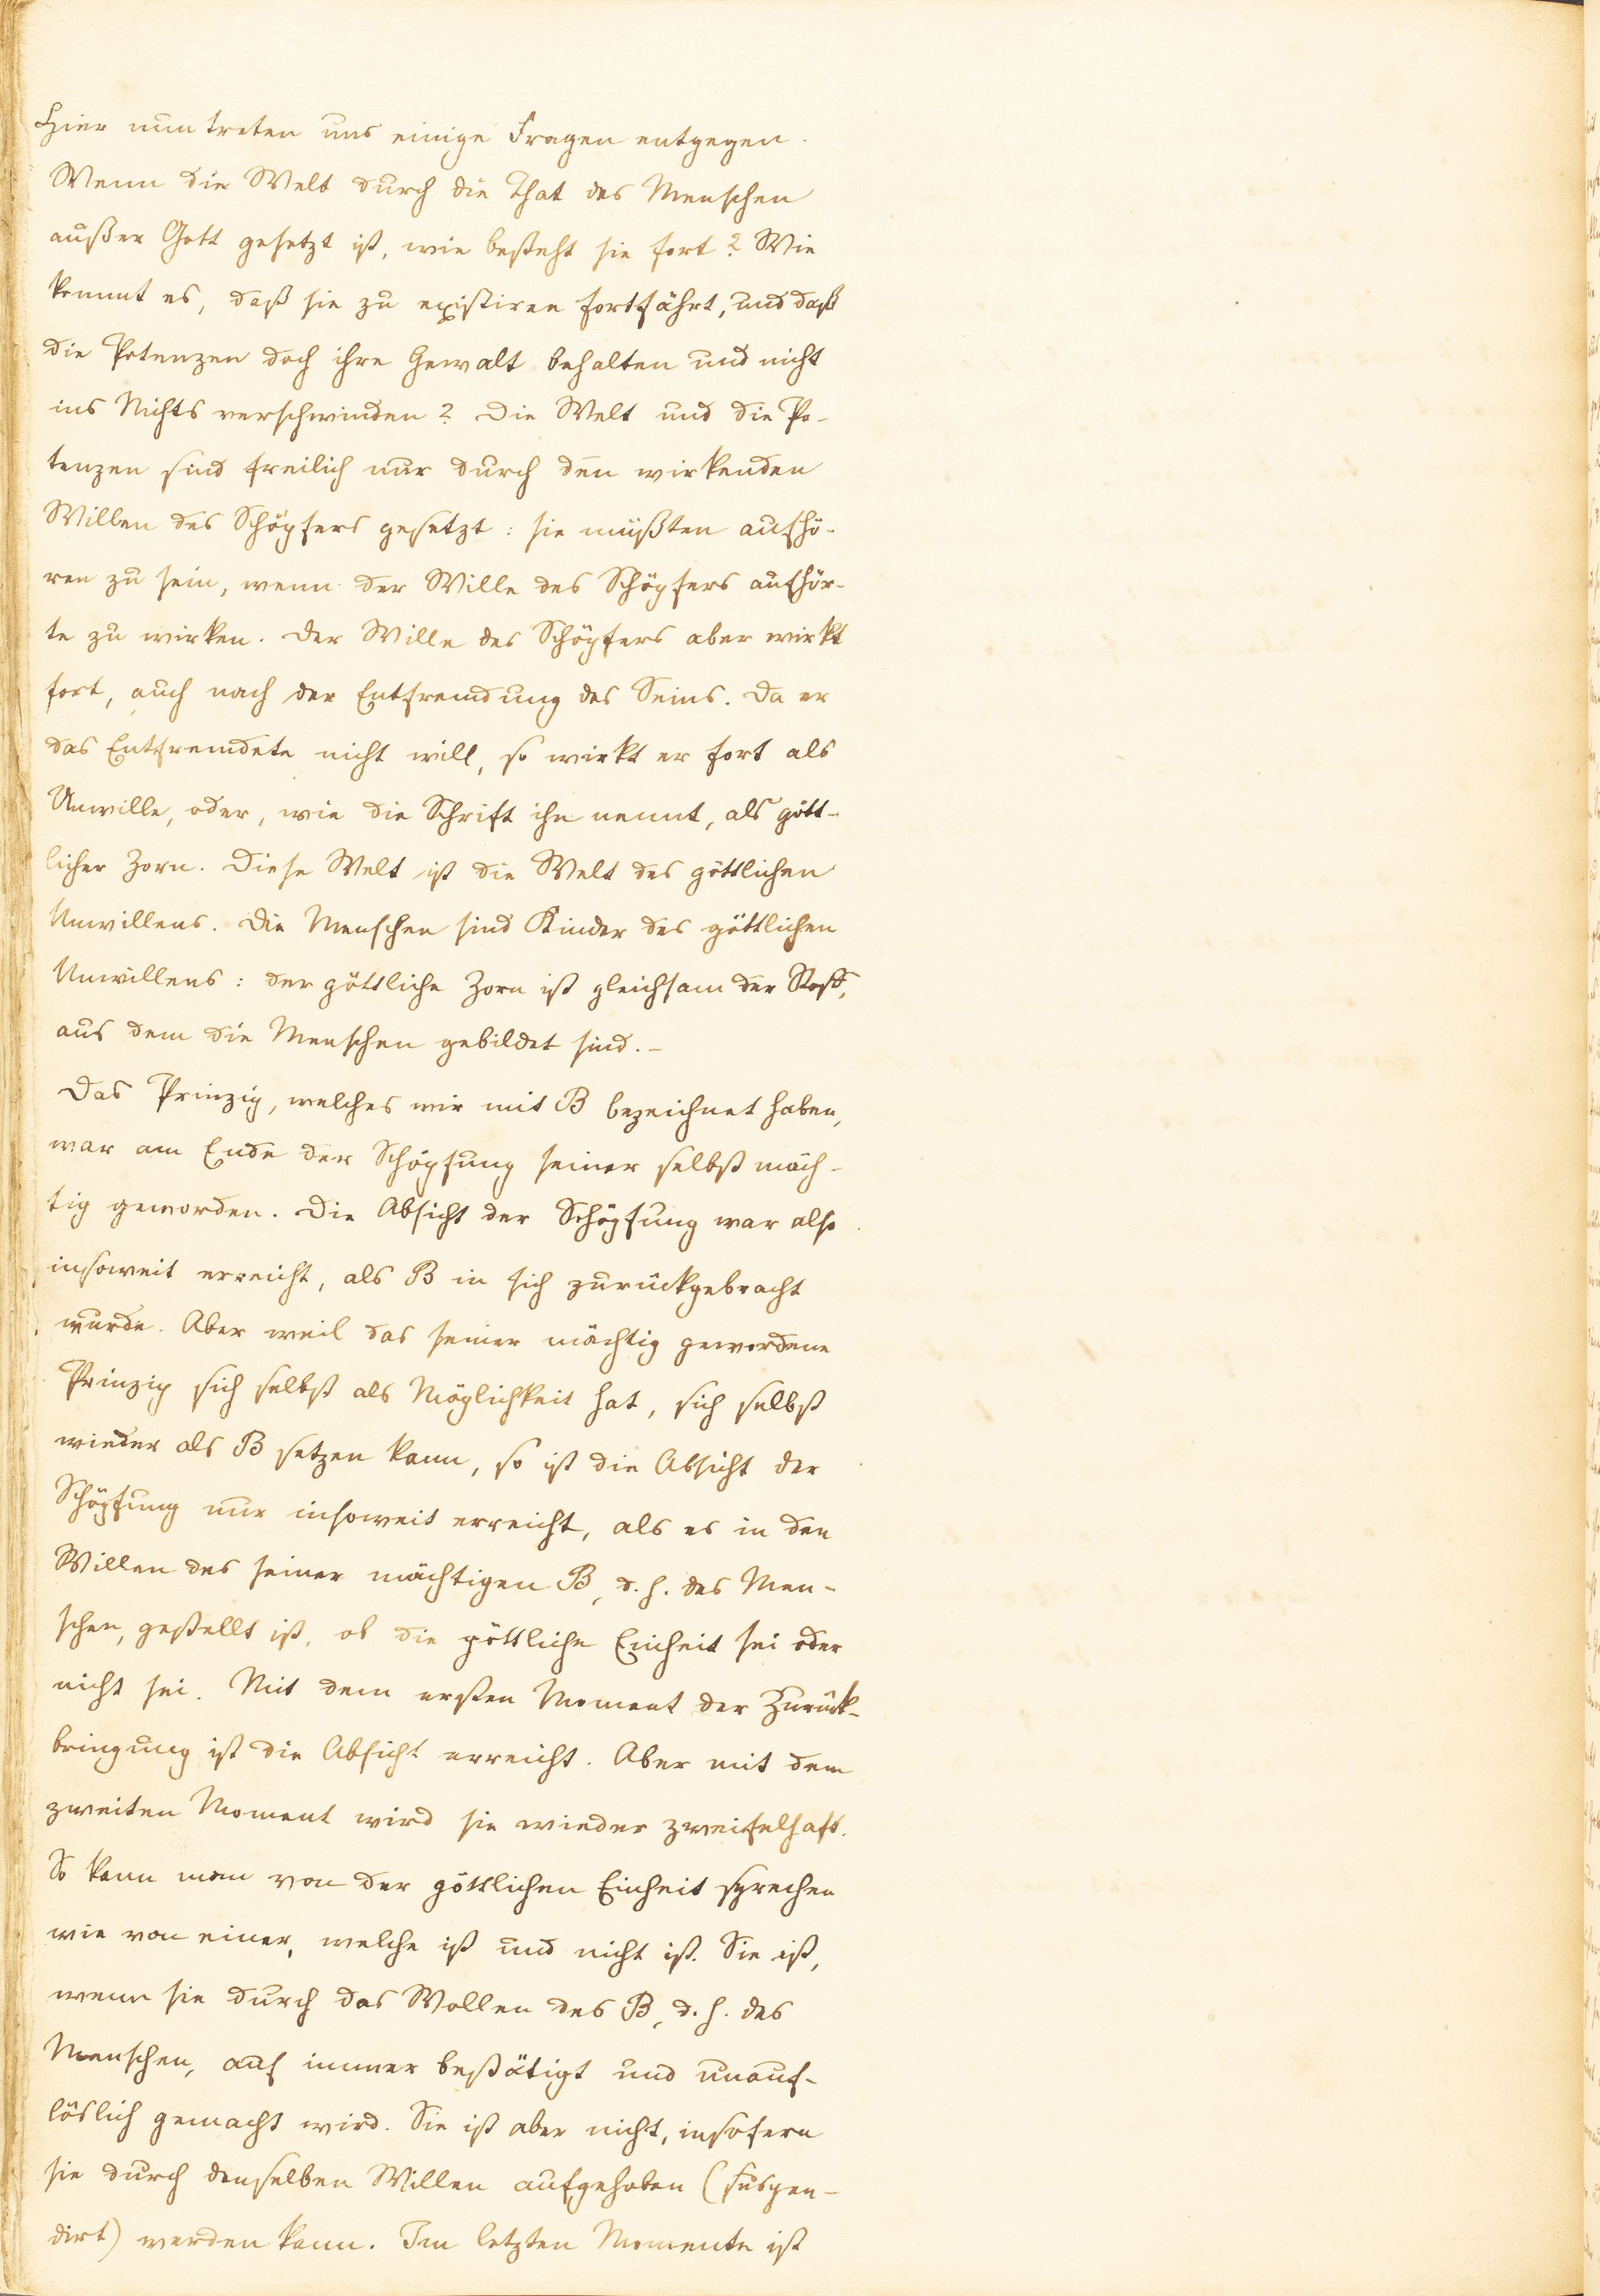 Hier nun treten uns einige Fragen entgegen.
Wenn die Welt durch die That des Menschen
außer Gott gesetzt ist, wie besteht sie fort? Wie
kommt es, daß sie zu existiren fortfährt, und daß
die Potenzen doch ihre Gewalt behalten und nicht
ins Nichts verschwinden? Die Welt und die Po-
tenzen sind freilich nur durch den wirkenden
Willen des Schöpfers gesetzt: sie müßten aufhö-
ren zu sein, wenn der Wille des Schöpfers aufhör-
te zu wirken. Der Wille des Schöpfers aber wirkt
fort, auch nach der Entfremdung des Seins. Da er
das Entfremdete nicht will, so wirkt er fort als
Unwille, oder, wie die Schrift ihn nennt, als gött-
licher Zorn. Diese Welt ist die Welt des göttlichen
Unwillens. Die Menschen sind Kinder des göttlichen
Unwillens: der göttliche Zorn ist gleichsam der Stoff,
aus dem die Menschen gebildet sind. –
Das Prinzip, welches wir mit B bezeichnet haben,
war am Ende der Schöpfung seiner selbst mäch-
tig geworden. Die Absicht der Schöpfung war also
insoweit erreicht, als B in sich zurückgebracht
wurde. Aber weil das seiner mächtig gewordene
Prinzip sich selbst als Möglichkeit hat, sich selbst
wieder als B setzen kann, so ist die Absicht der
Schöpfung nur insoweit erreicht, als es in den
Willen des seiner mächtigen B, d. h. des Men-
schen, gestellt ist, ob die göttliche Einheit sei oder
nicht sei. Mit dem ersten Moment der Zurück-
bringung ist die Absicht erreicht. Aber mit dem
zweiten Moment wird sie wieder zweifelhaft.
So kann man von der göttlichen Einheit sprechen
wie von einer, welche ist und nicht ist. Sie ist,
wenn sie durch das Wollen des B, d. h. des
Menschen, auf immer bestätigt und unauf-
löslich gemacht wird. Sie ist aber nicht, insofern
sie durch denselben Willen aufgehoben (suspen-
dirt) werden kann. Im letzten Momente ist